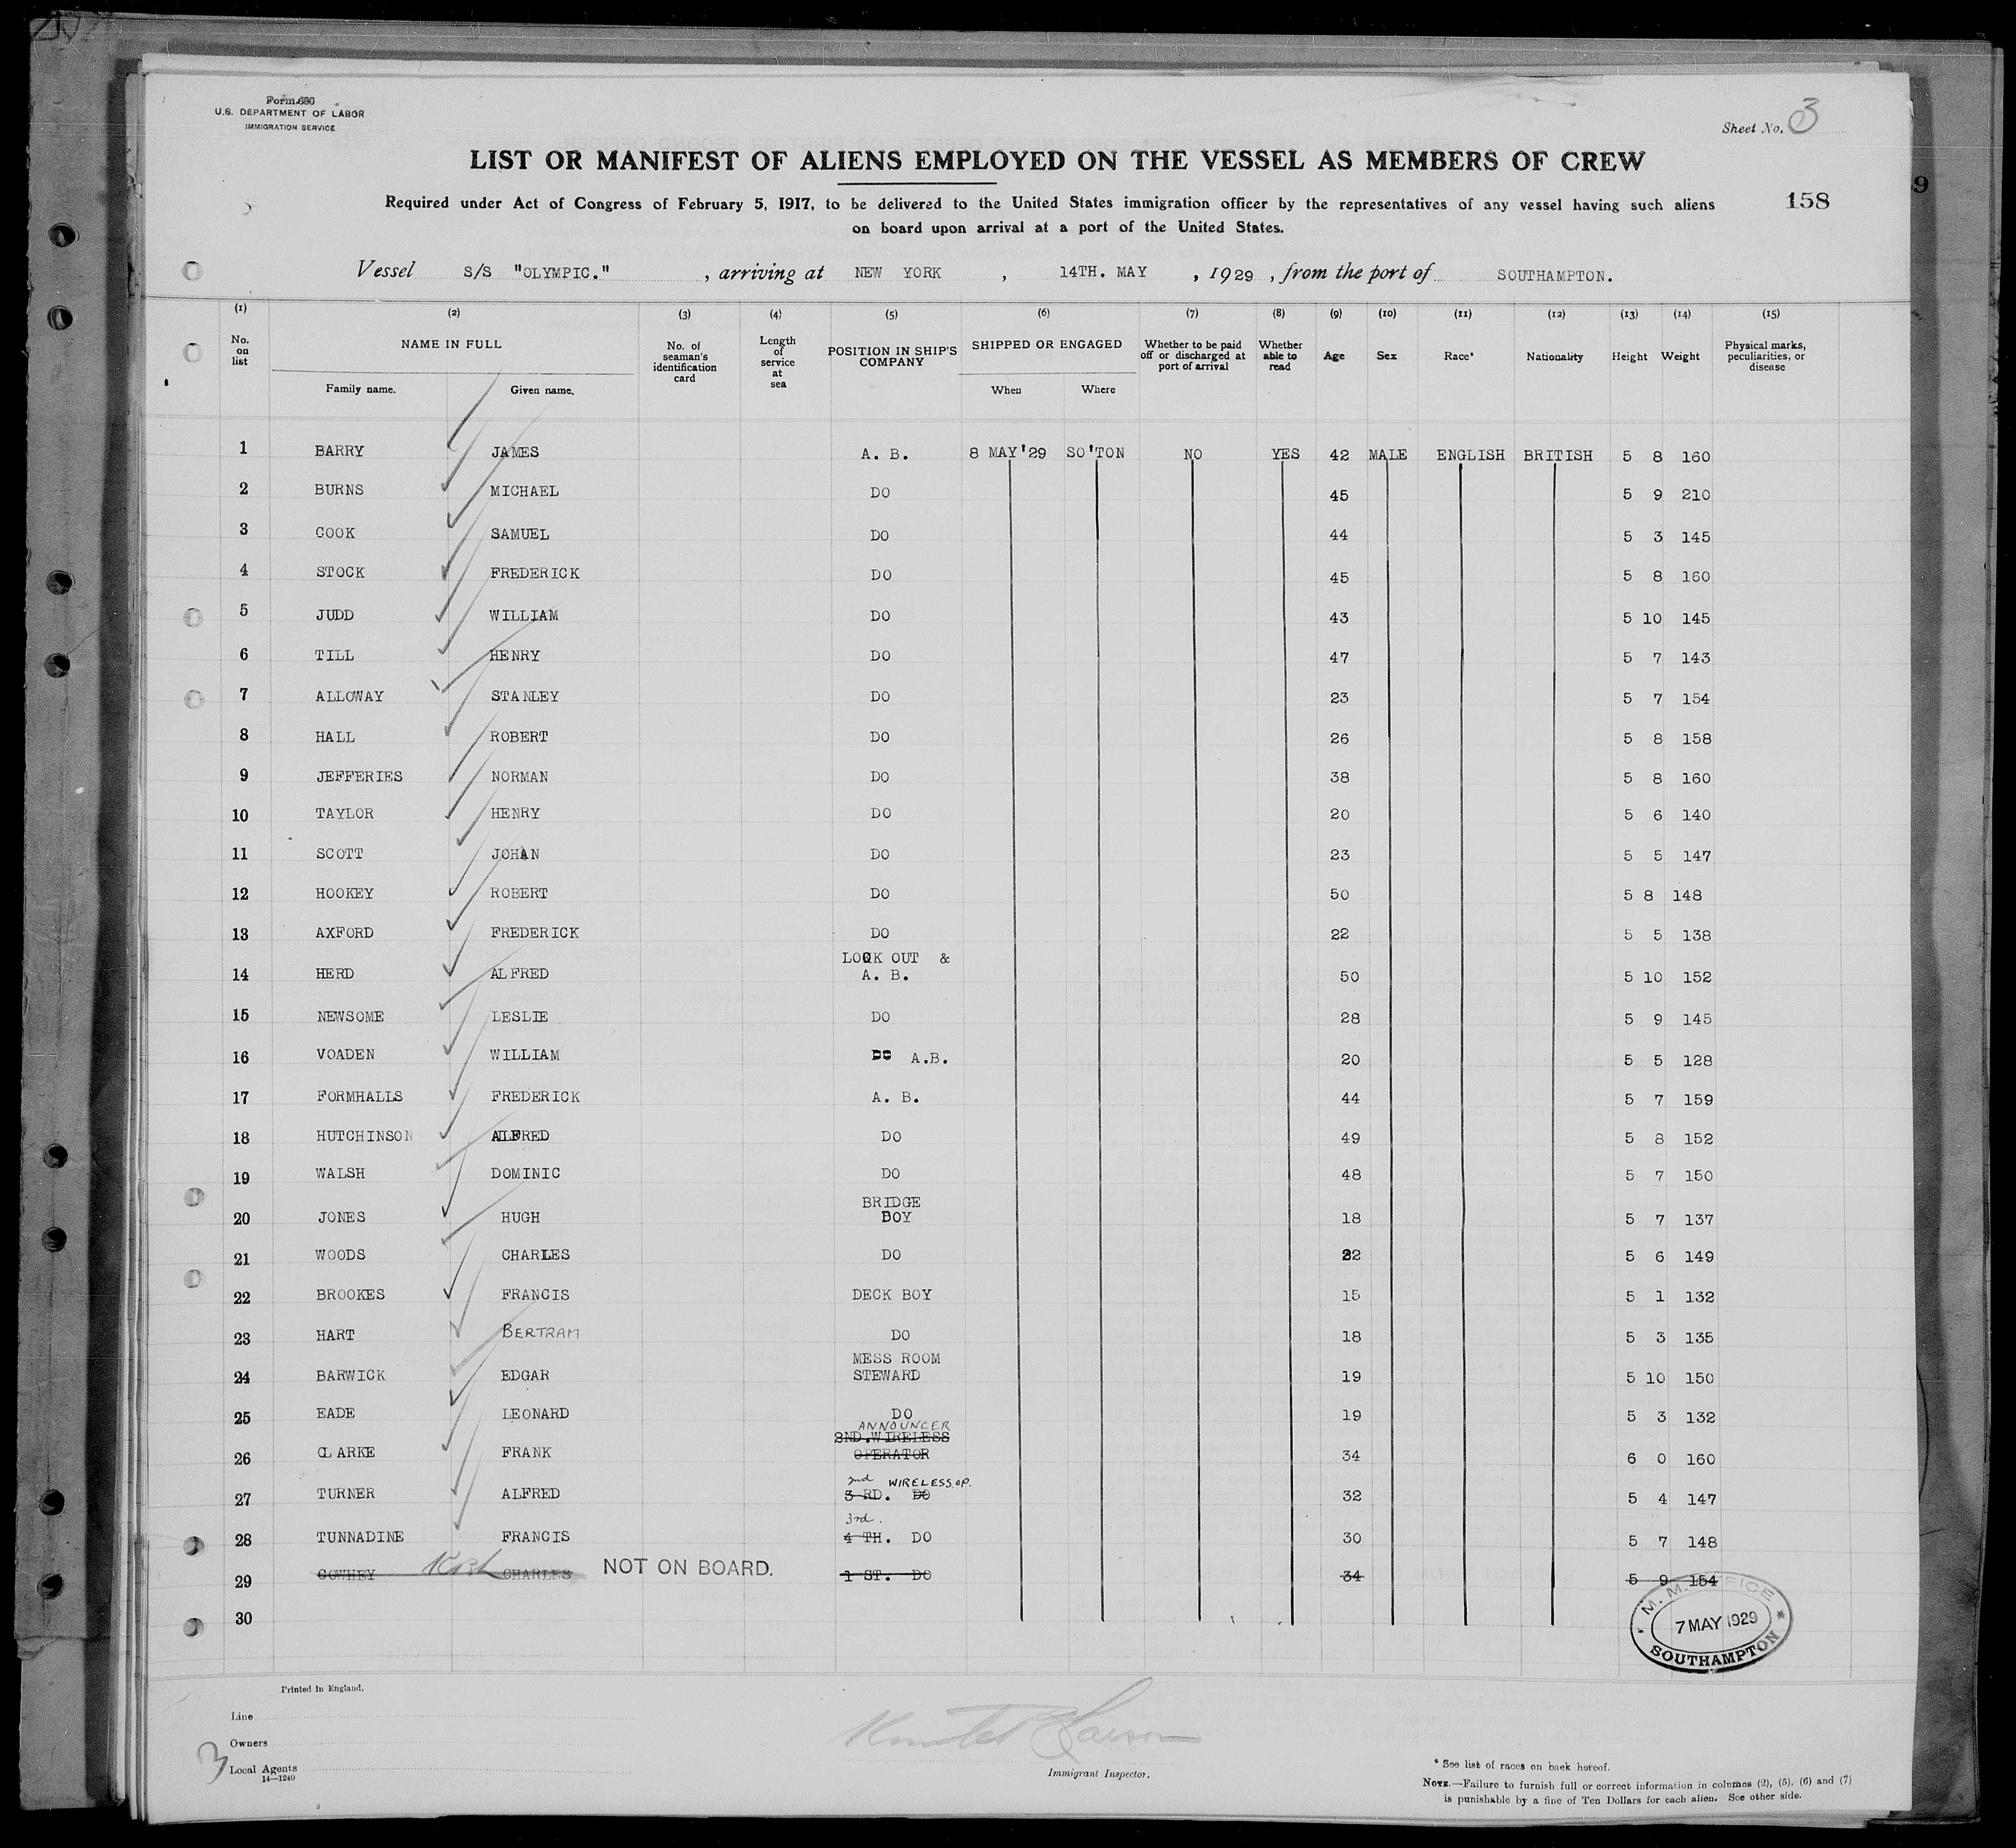 Form 680
U.S. DEPARTMENT OF LABOR
IMMIGRATION SERVICE
Sheet No. 3
LIST OR MANIFEST OF ALIENS EMPLOYED ON THE VESSEL AS MEMBERS OF CREW
Required under Act of Congress of February 5, 1917, to be delivered to the United States immigration officer by the representatives of any vessel having such aliens
on board upon arrival at a port of the United States.
158
9
Vessel S/S "OLYMPIC." , arriving at NEW YORK , 14TH. MAY , 1929 , from the port of SOUTHAMPTON.
(1) (2) (3) (4) (5) (6) (7) (8) (9) (10) (11) (12) (13) (14) (15)
No. on list NAME IN FULL Family name. Given name. No. of seaman's identification card Length of service at sea POSITION IN SHIP'S COMPANY SHIPPED OR ENGAGED When Where Whether to be paid off or discharged at port of arrival Whether able to read Age Sex Race* Nationality Height Weight Physical marks, peculiarities, or disease
1 BARRY JAMES A. B. 8 MAY'29 SO'TON NO YES 42 MALE ENGLISH BRITISH 5 8 160
2 BURNS MICHAEL DO 45 5 9 210
3 COOK SAMUEL DO 44 5 3 145
4 STOCK FREDERICK DO 45 5 8 160
5 JUDD WILLIAM DO 43 5 10 145
6 TILL HENRY DO 47 5 7 143
7 ALLOWAY STANLEY DO 23 5 7 154
8 HALL ROBERT DO 26 5 8 158
9 JEFFERIES NORMAN DO 38 5 8 160
10 TAYLOR HENRY DO 20 5 6 140
11 SCOTT JOHAN DO 23 5 5 147
12 HOOKEY ROBERT DO 50 5 8 148
13 AXFORD FREDERICK DO 22 5 5 138
14 HERD ALFRED LOOK OUT & A. B. 50 5 10 152
15 NEWSOME LESLIE DO 28 5 9 145
16 VOADEN WILLIAM DO A.B. 20 5 5 128
17 FORMHALLS FREDERICK A. B. 44 5 7 159
18 HUTCHINSON ALFRED DO 49 5 8 152
19 WALSH DOMINIC DO 48 5 7 150
20 JONES HUGH BRIDGE BOY 18 5 7 137
21 WOODS CHARLES DO 22 5 6 149
22 BROOKES FRANCIS DECK BOY 15 5 1 132
23 HART BERTRAM DO 18 5 3 135
24 BARWICK EDGAR MESS ROOM STEWARD 19 5 10 150
25 EADE LEONARD DO 19 5 3 132
26 CLARKE FRANK ANNOUNCER 2ND.WIRELESS OPERATOR 34 6 0 160
27 TURNER ALFRED 2nd WIRELESS OP. 3 RD. DO 32 5 4 147
28 TUNNADINE FRANCIS 3rd. 4 TH. DO 30 5 7 148
29 COWHEY CHARLES NOT ON BOARD. 1 ST. DO 34 5 9 154
30
M. M. OFFICE
7 MAY 1929
SOUTHAMPTON
Printed in England.
Line
Owners
3
Local Agents
14—1240
Immigrant Inspector.
* See list of races on back hereof.
NOTE.—Failure to furnish full or correct information in columns (2), (5), (6) and (7)
is punishable by a fine of Ten Dollars for each alien. See other side.